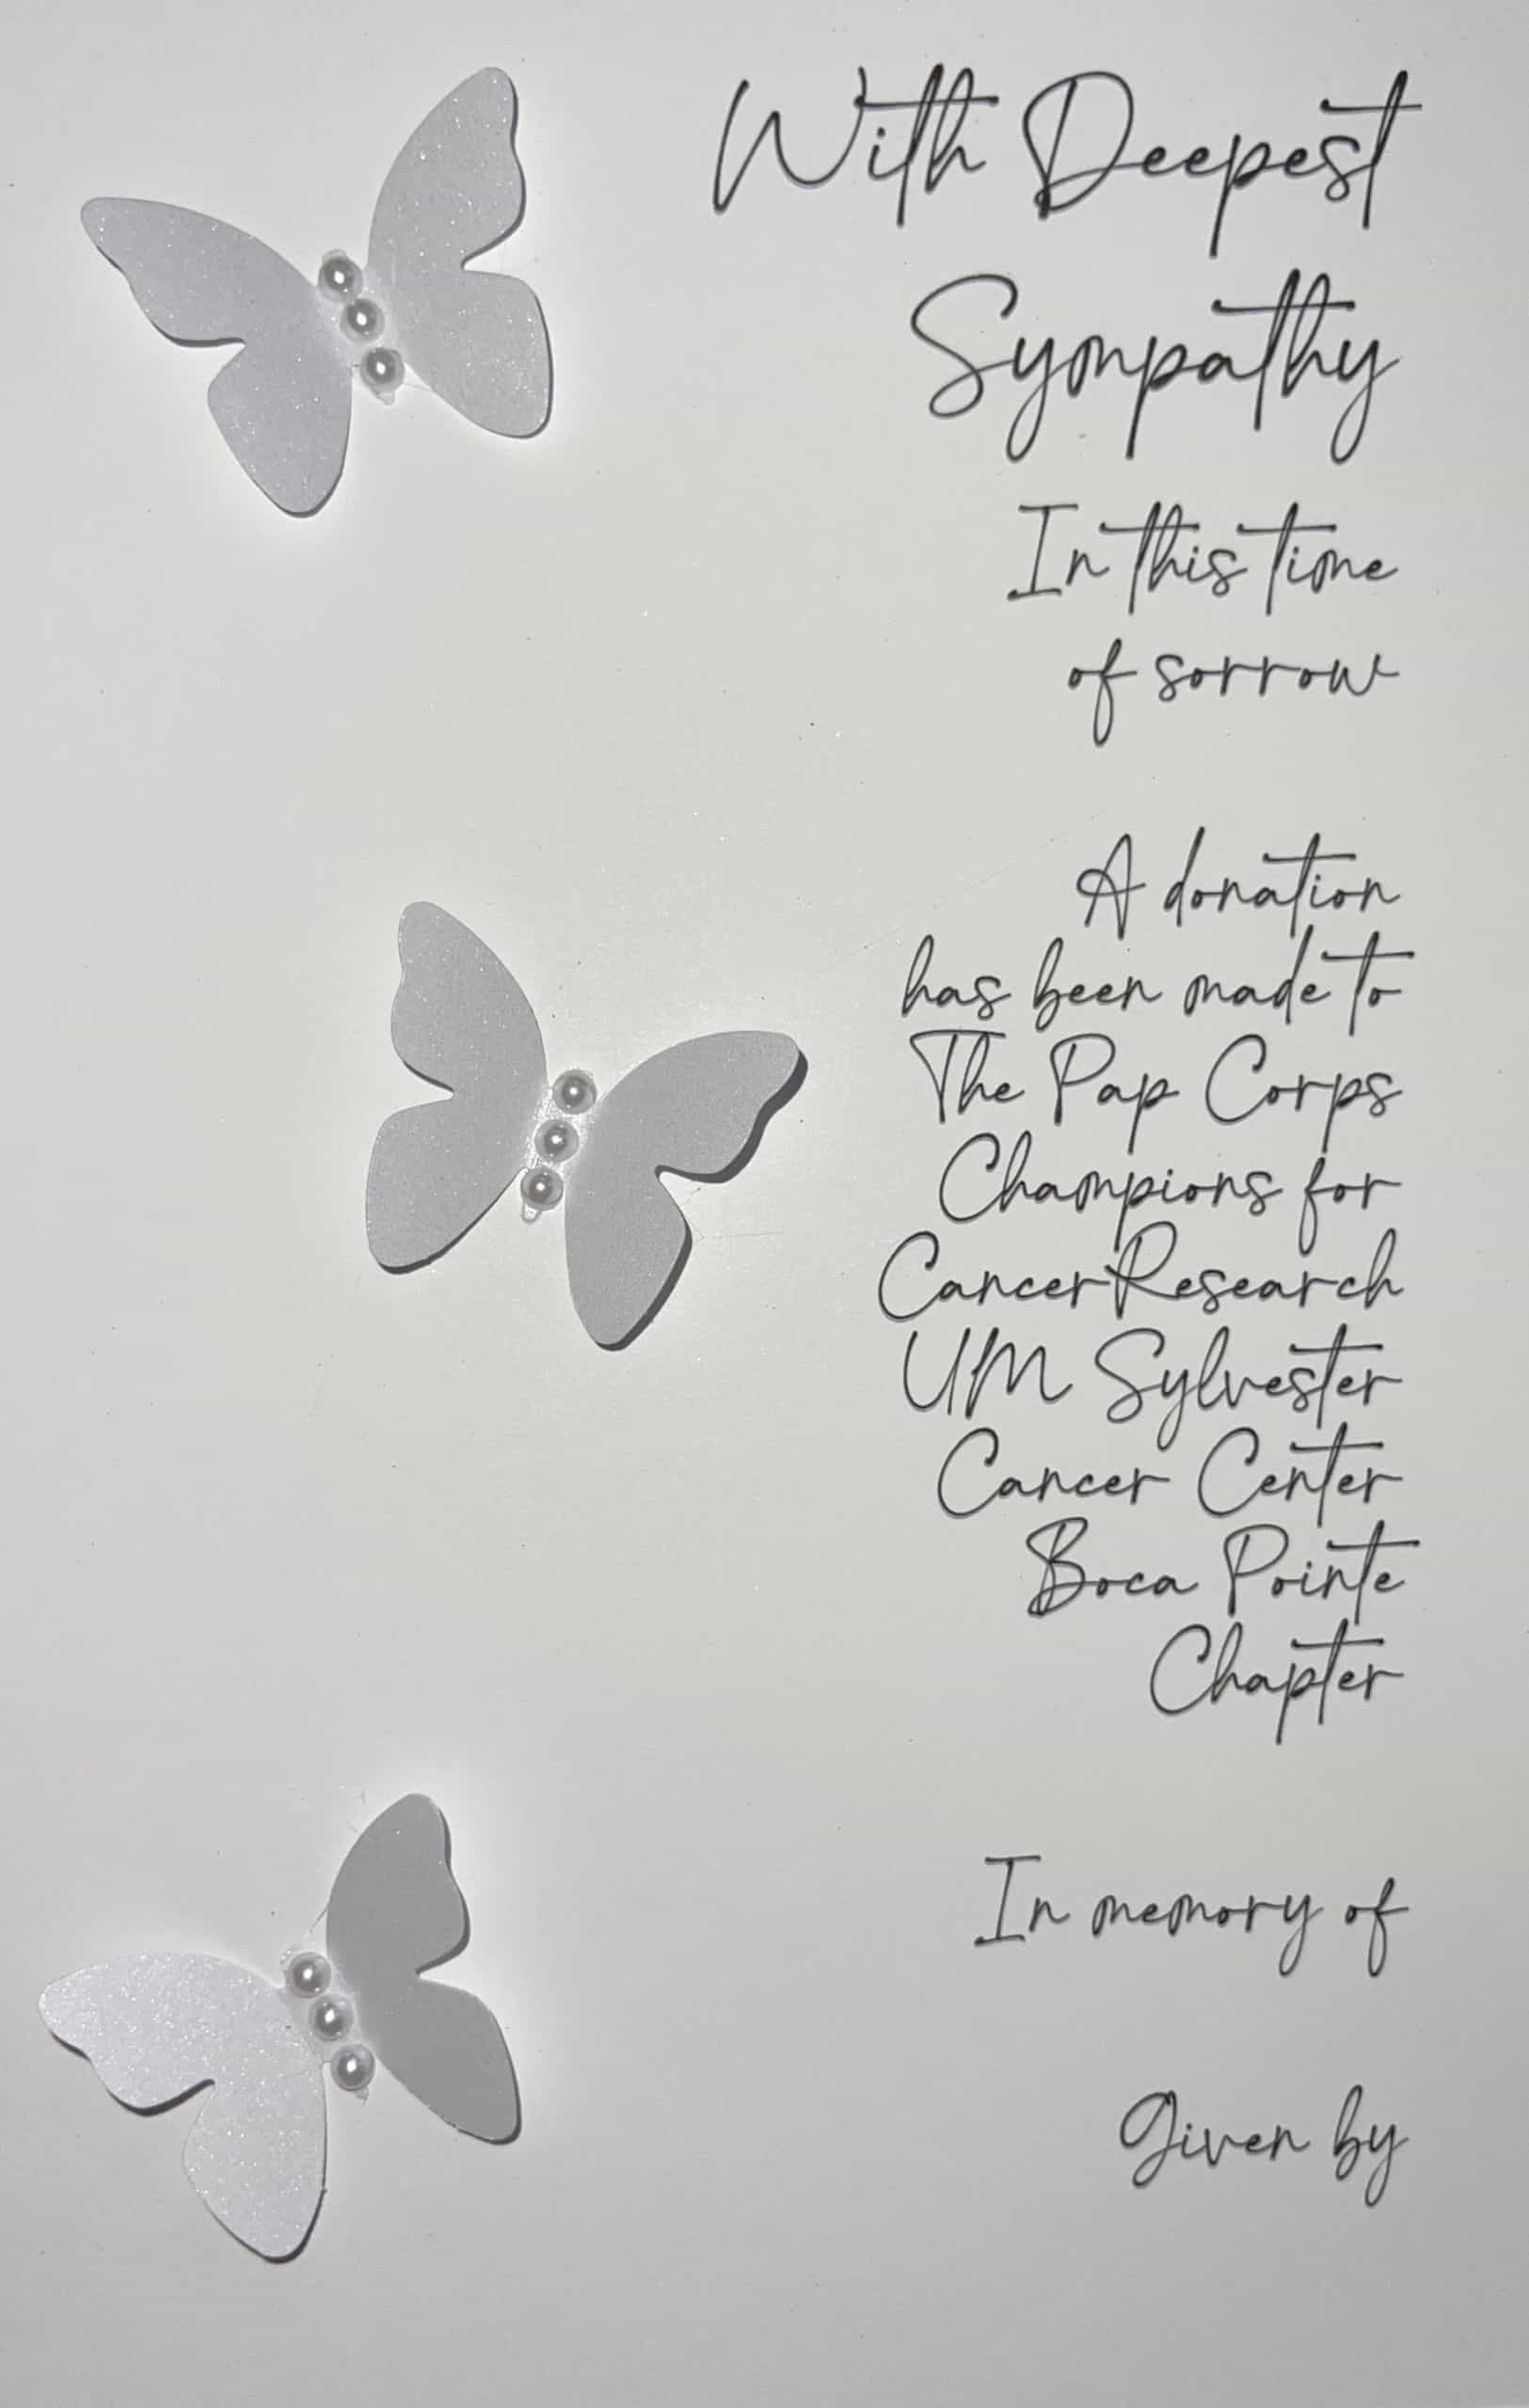 With Deepest
Sympathy
In this time
of sorrow
A donation
has been made to
The Pap Corps
Champions for
Cancer Research
UM Sylvester
Cancer Center
Boca Pointe
Chapter
In memory of
Given by